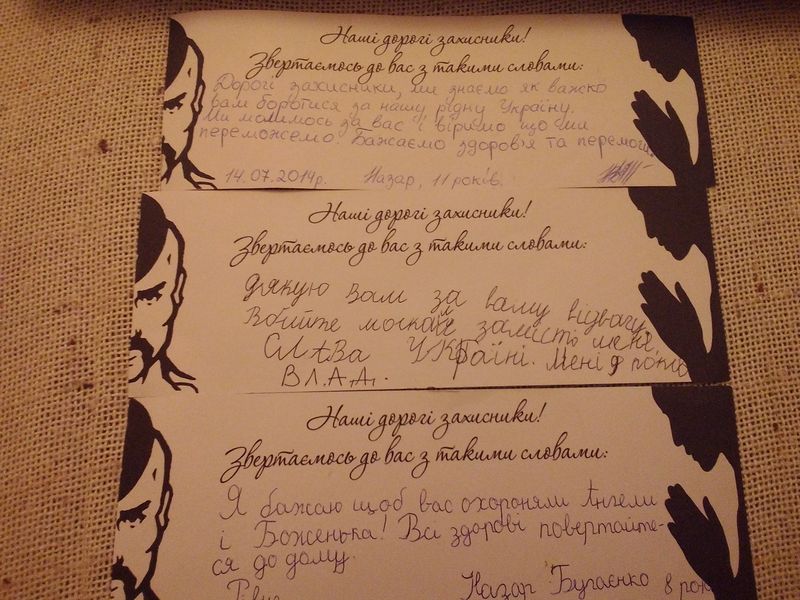 Наші дорогі захисники!
Звертаємось до вас з такими словами:
Дорогі захисники, ми знаємо як важко
вам боротися за нашу рідну Україну.
Ми молимось за вас і віримо що ми
переможемо. Бажаємо здоров'я та перемоги.
14.07.2014р. Назар, 11 років.
Наші дорогі захисники!
Звертаємось до вас з такими словами:
Дякую вам за вашу відвагу.
Вбийте москаля замість мене.
СЛАВа УКРаїні. Мені 9 років
ВЛ.А.Д.
Наші дорогі захисники!
Звертаємось до вас з такими словами:
Я бажаю щоб вас охороняли Ангели
і Боженька! Всі здорові повертайте-
ся до дому.
Рівне Назар Бугаєнко 8 рок